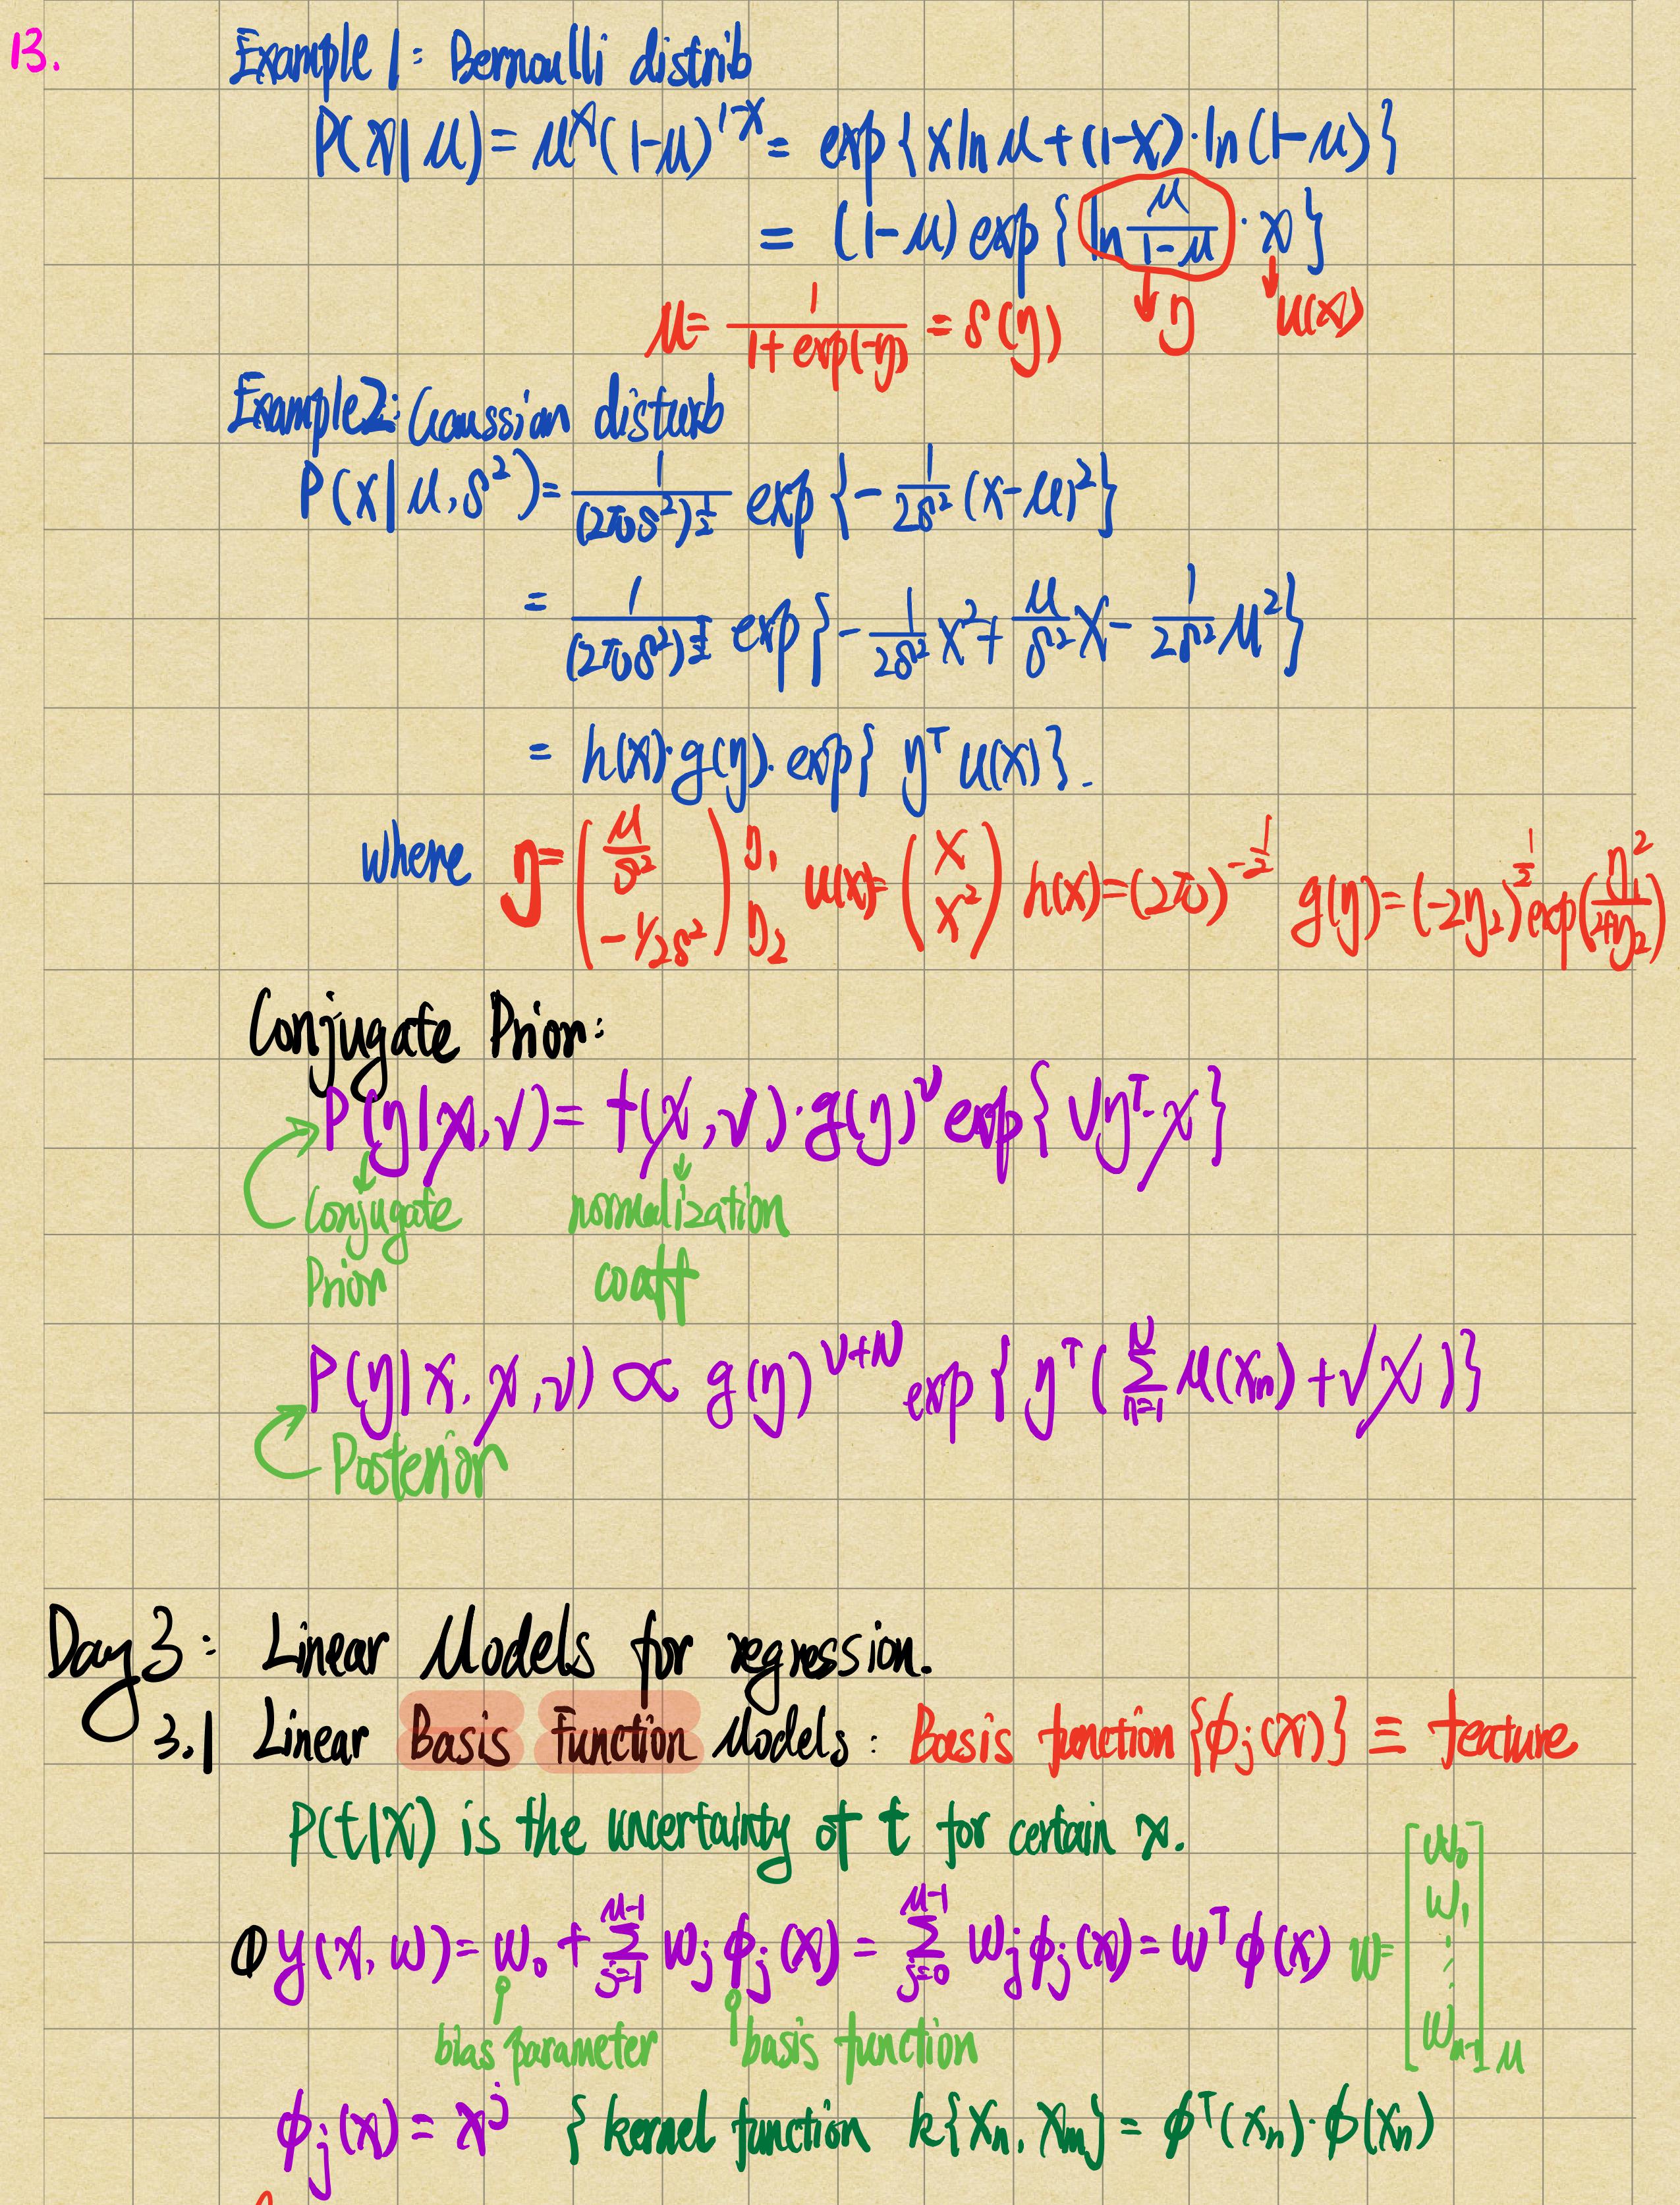 13.
Example 1: Bernoulli distrib
P(x|μ) = μ^x (1-μ)^{1-x} = exp{x ln μ + (1-x)·ln(1-μ)}
= (1-μ) exp{ln μ/(1-μ) · x}
μ = 1/(1+exp(-η)) = δ(η) ↓ η ↓ u(x)
Example 2: Gaussian disturb
P(x|μ, δ²) = 1/(2πδ²)^{1/2} exp{-1/(2δ²) (x-μ)²}
= 1/(2πδ²)^{1/2} exp{-1/(2δ²) x² + μ/δ² x - 1/(2δ²) μ²}
= h(x)·g(η)·exp{η^T u(x)}.
where η = (μ/δ², -1/2δ²) η₁ η₂ u(x) = (x, x²) h(x) = (2π)^{-1/2} g(η) = (-2η₂)^{1/2} exp(η₁²/4η₂)
Conjugate Prior:
P(η|χ, ν) = f(χ, ν)·g(η)^ν exp{νη^T·χ}
Conjugate Prior
normalization coeff
P(η|x, χ, ν) ∝ g(η)^{ν+N} exp{η^T(Σ_{n=1}^{N} μ(x_n) + νχ)}
Posterior
Day 3: Linear Models for regression.
3.1 Linear Basis Function Models: Basis function {ϕ_j(x)} ≡ feature
P(t|x) is the uncertainty of t for certain x.
① y(x, w) = w₀ + Σ_{j=1}^{M-1} w_j ϕ_j(x) = Σ_{j=0}^{M-1} w_j ϕ_j(x) = w^T ϕ(x) w = [w₀ w₁ ⋮ w_{m-1}]_M
bias parameter basis function
ϕ_j(x) = x^j { kernel function k{x_n, x_m} = ϕ^T(x_n)·ϕ(x_n)